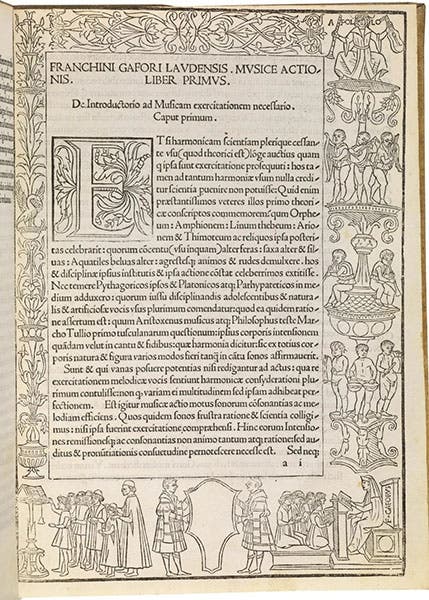 APOLLO
FRANCHINI GAFORI LAVDENSIS. MVSICE ACTIO-
NIS. LIBER PRIMVS.
De Introductorio ad Musicam exercitationem necessario.
Caput primum.
ETsi harmonicam scientiam plerique cessan
te vsu (quod theorici est) lōge auctius quam
qipsa sunt exercitatione prosequuti: hos ta
men ad tantum harmoniæ vsum nulla credi
tur scientia puenire non potuisse: Quid enim
præstantissimos veteres illos primo theori
cæ conscriptos commemorem: quom Orphe
um: Amphionem: Linum thebeum: Ario
nem & Thimoteum ac reliquos ipsa posteri
tas celebrarit: quorum cōcentu (vsu inquam) alter feras: saxa alter & sil
uas: Aquatiles beluas alter: agrestesq animos & rudes demulxere. hos
& disciplinæ ipsius institutis & ipsa actione cōstat celeberrimos extitisse.
Nec temere Pythagoricos ipsos & Platonicos atq Parhypateticos in me
dium adduxero: quorum iussu disciplinandis adolescentibus & natura
lis & artificiosæ vocis vsus plurimum comendatur: quod ea quidem ratio
ne assertum est: quom Aristoxenus musicus atq Philosophus teste Mar
cho Tullio primo tusculanarum questionum: ipsius corporis intensionem
quādam velut in cantu & fidibus: quæ harmonia dicitur: sic ex totius cor
poris natura & figura varios modos fieri tanq in cātu sonos affirmauerit.
Sunt & qui vanas posuere potentias nisi redigantur ad actus: qua re
exercitationem melodicæ vocis sentiunt harmonicæ consyderationi plu
rimum contulisse: non q variam ei multitudinem sed ipsam adhibeat per
fectionem. Est igitur musicæ actio motus sonorum cōsonantias ac melo
diam efficiens. Quos quidem sonos frustra ratione & scientia colligi
mus: nisi ipsa fuerint exercitatione comprehensi. Hinc eorum Intensio
nes remissionesq ac consonantias non animo tantum atq ratione: sed au
ditus & pronūtiationis consuetudine pernotescere necesse est. Sed neq
a i